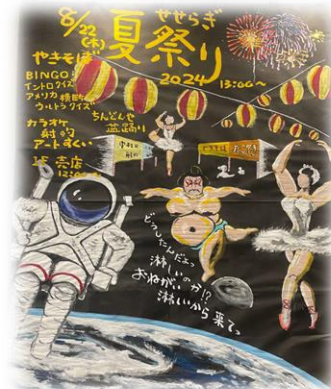 8/22(木)
せせらぎ
夏祭り
2024
13:00〜
やきそば
BINGO
イントロクイズ
アメリカ横断
ウルトラクイズ
ちんどんや
盆踊り
カラオケ
射的
アートすくい
1F 売店
どうしたんだよっ
淋しいのか!?
おねがい
淋しいから来てっ